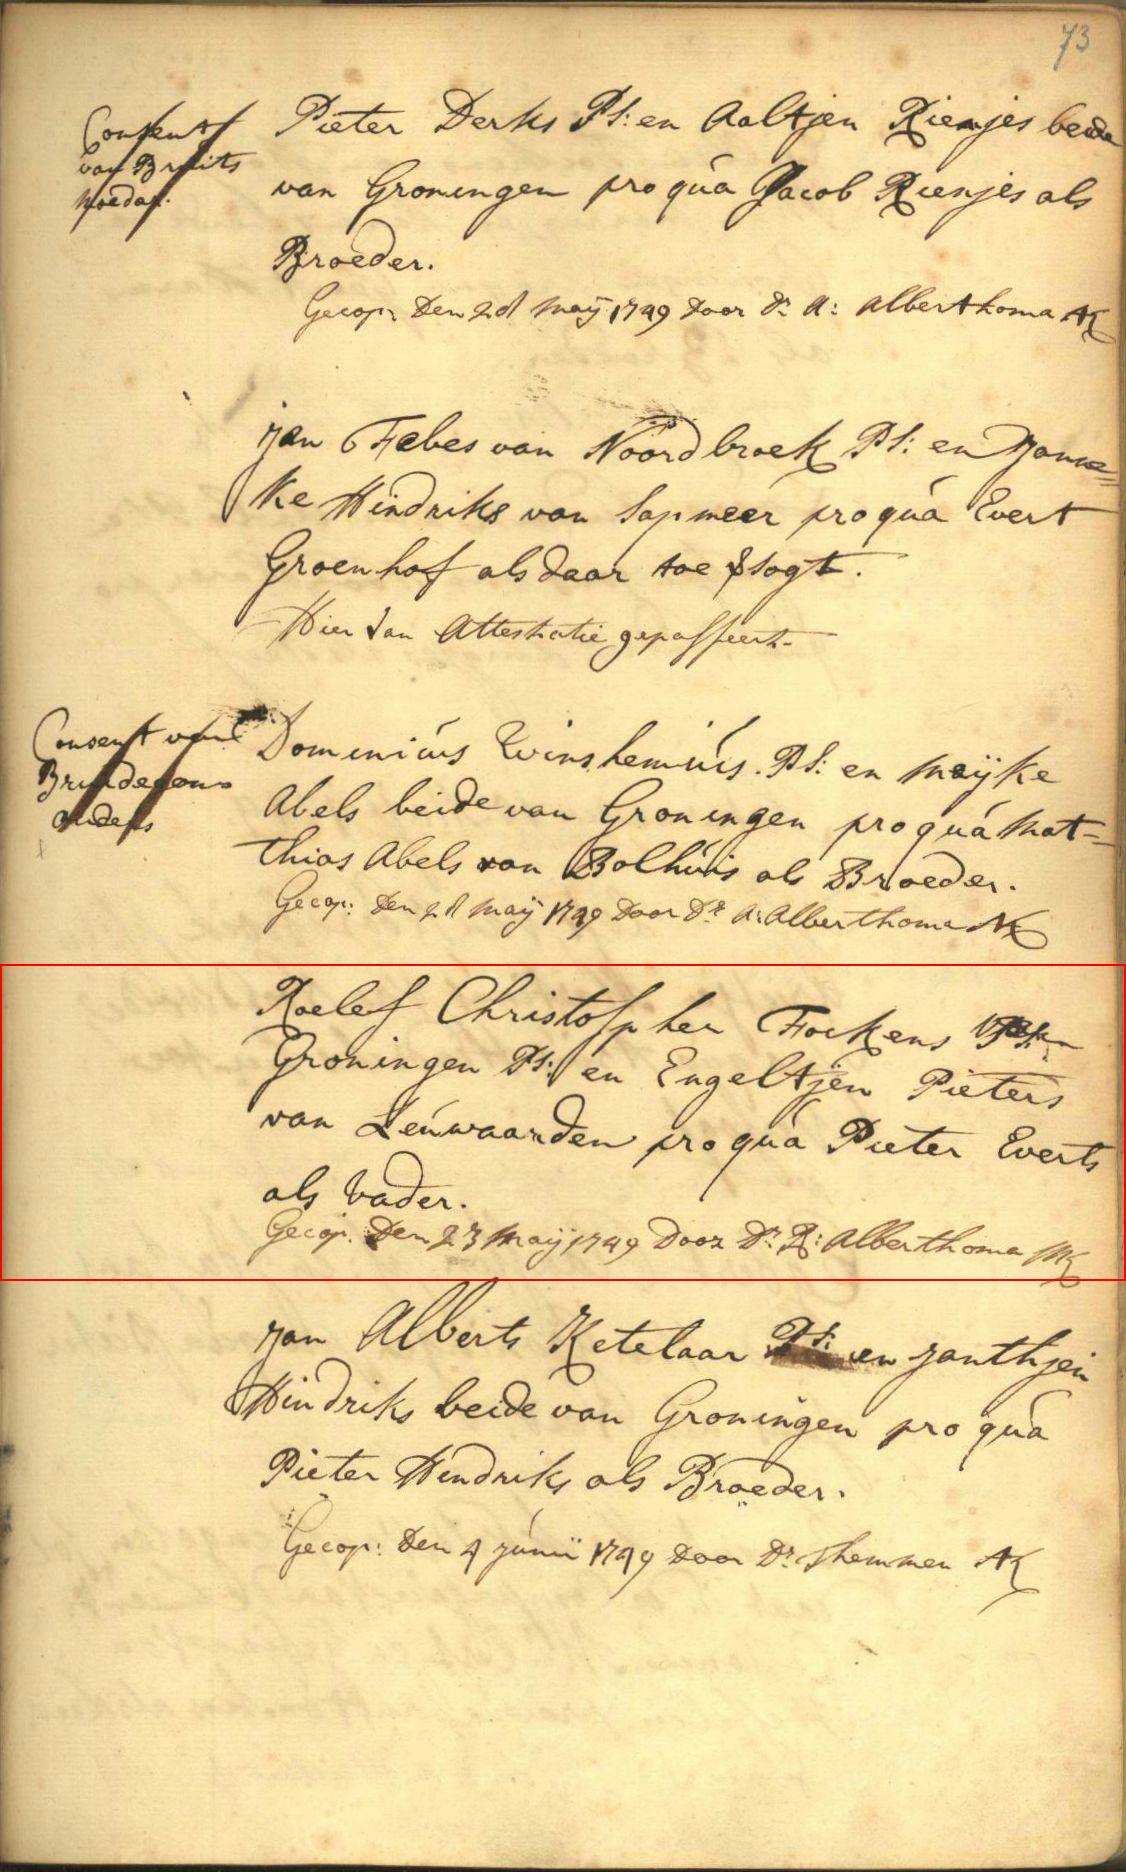 73
Consent
van Bruits
moeder.
Pieter Derks Ps: en Aaltjen Rienjes beide
van Groningen pro qúa Jacob Rienjes als
Broeder.
Gecop: Den 28 maÿ 1749 Door Dr A: Alberthoma
Jan Febes van Noordbroek Ps: en Janne=
ke Hindriks van Sapmeer pro qúa Evert
Groenhof als daar toe versogt.
Hier van Attestatie gepasseert.
Consent van
Bruidegoms
ouders
Dominicus Winshemiús. Ps: en Maÿke
Abels beide van Groningen pro qúa Mat=
thias Abels van Bolhúis als Broeder.
Gecop: Den 28 maÿ 1749 Door Dr A: Alberthoma
Roelef Christoffher Fockens van
Groningen Ps: en Engeltjen Pieters
van Leúwaarden pro qúa Pieter Everts
als Vader.
Gecop. Den 23 maÿ 1749 Door Dr R: Alberthoma
Jan Alberts Ketelaar Ps: en Janthjen
Hindriks beide van Groningen pro qúa
Pieter Hindriks als Broeder.
Gecop: Den 4 júnii 1749 Door Dr Themmen